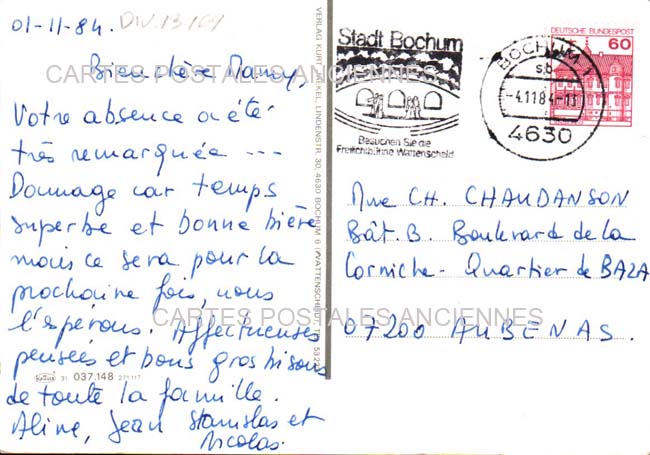 01-11-84.
Bien chère Mamy,
Votre absence a été
très remarquée ---
Dommage car temps
superbe et bonne bière
mais ce sera pour la
prochaine fois, nous
l'espérons. Affectueuses
pensées et bons gros bisous
de toute la famille.
Aline, Jean Stanislas et
Nicolas.
CARTES POSTALES ANCIENNES
CARTES POSTALES ANCIENNES
037.148
Stadt Bochum
Besuchen Sie die
Freilichtbühne Wattenscheid
BOCHUM 1
sb
-4.11.84-
4630
DEUTSCHE BUNDESPOST
60
Mme CH. CHAUDANSON
Bât. B. Boulevard de la
Corniche - Quartier de BAZA
07200 AUBENAS.